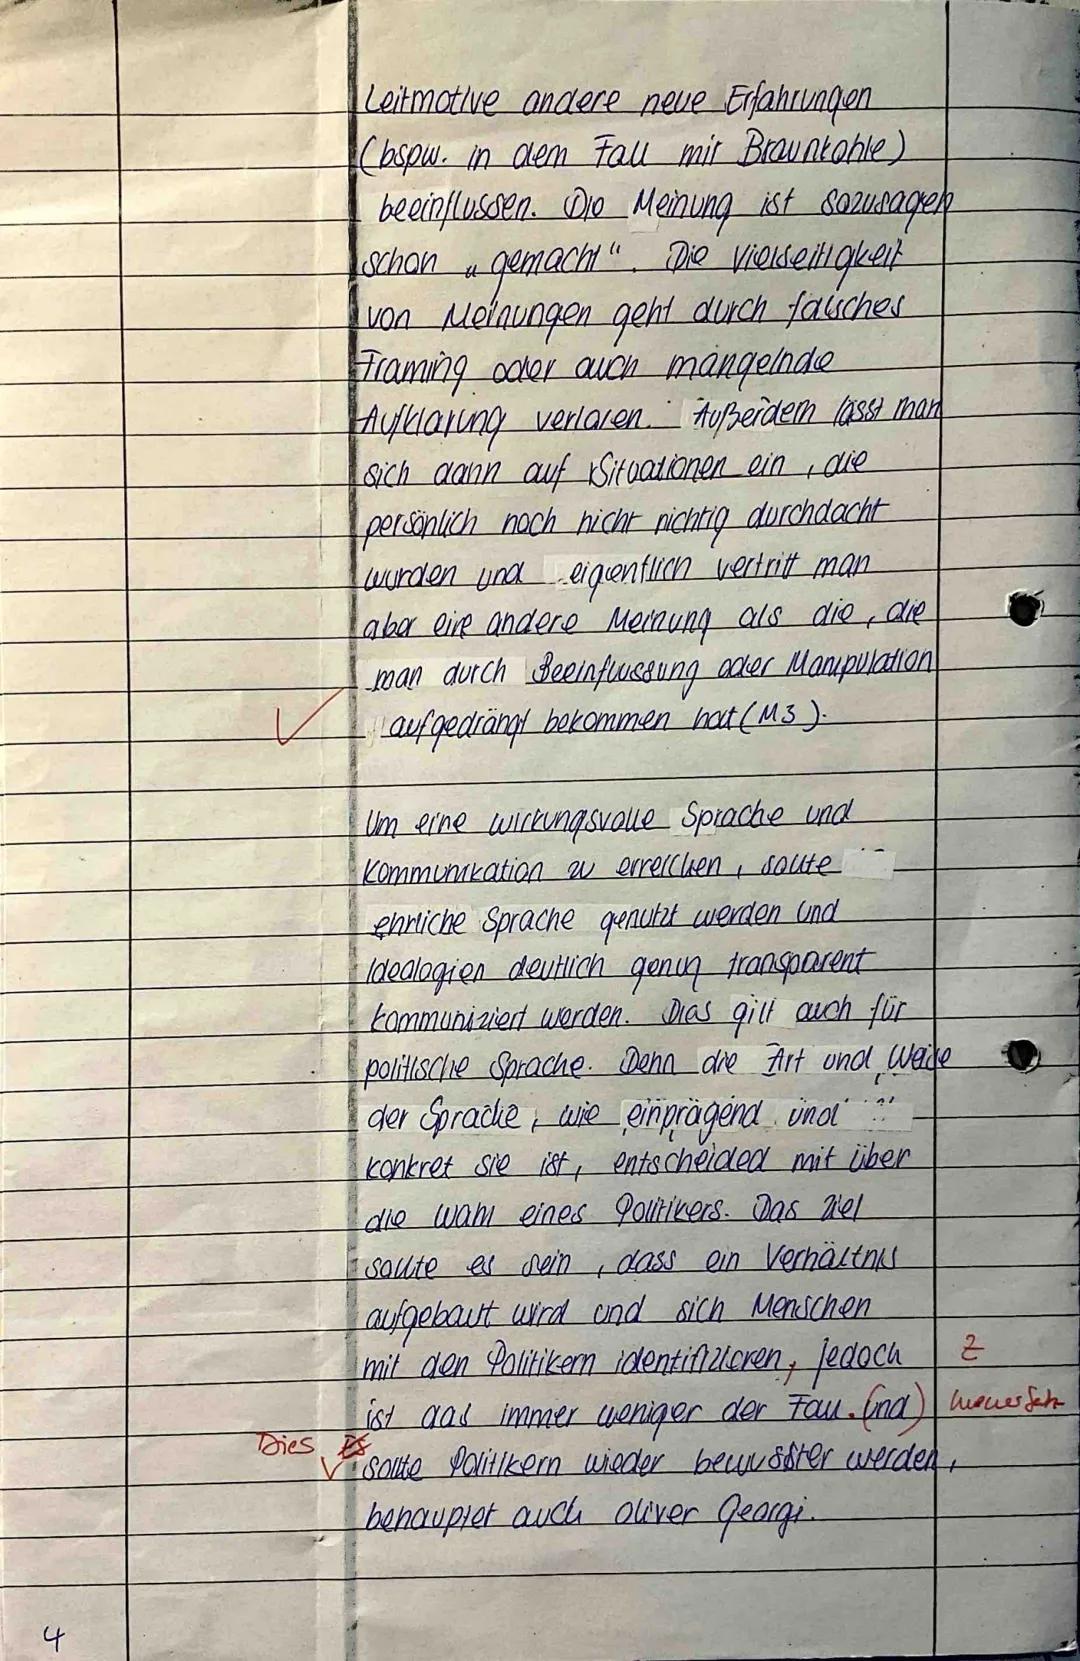 Leitmotive andere neue Erfahrungen
(bspw. in dem Fall mir Braunkohle)
beeinflussen. Die Meinung ist sozusagen
schon „gemacht“. Die Vielseitigkeit
von Meinungen geht durch falsches
Framing oder auch mangelnde
Aufklärung verloren. Außerdem lässt man
sich dann auf Situationen ein, die
persönlich noch nicht richtig durchdacht
wurden und eigentlich vertritt man
aber eine andere Meinung als die, die
man durch Beeinflussung oder Manipulation
aufgedrängt bekommen hat (M3).
Um eine wirkungsvolle Sprache und
Kommunikation zu erreichen, sollte
ehrliche Sprache genutzt werden und
Idealogien deutlich genug transparent
kommuniziert werden. Dies gilt auch für
politische Sprache. Denn die Art und Weise
der Sprache, wie einprägend und
konkret sie ist, entscheided mit über
die Wahl eines Politikers. Das Ziel
sollte es sein, dass ein Verhältnis
aufgebaut wird und sich Menschen
mit den Politikern identifizieren, jedoch Z
ist das immer weniger der Fall. (nd) neuer Satz
Dies Es sollte Politikern wieder bewusster werden,
behauptet auch Oliver Georgi.
4